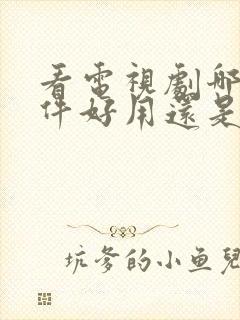 看電視劇哪
件好用還是
坑爹的小鱼兒